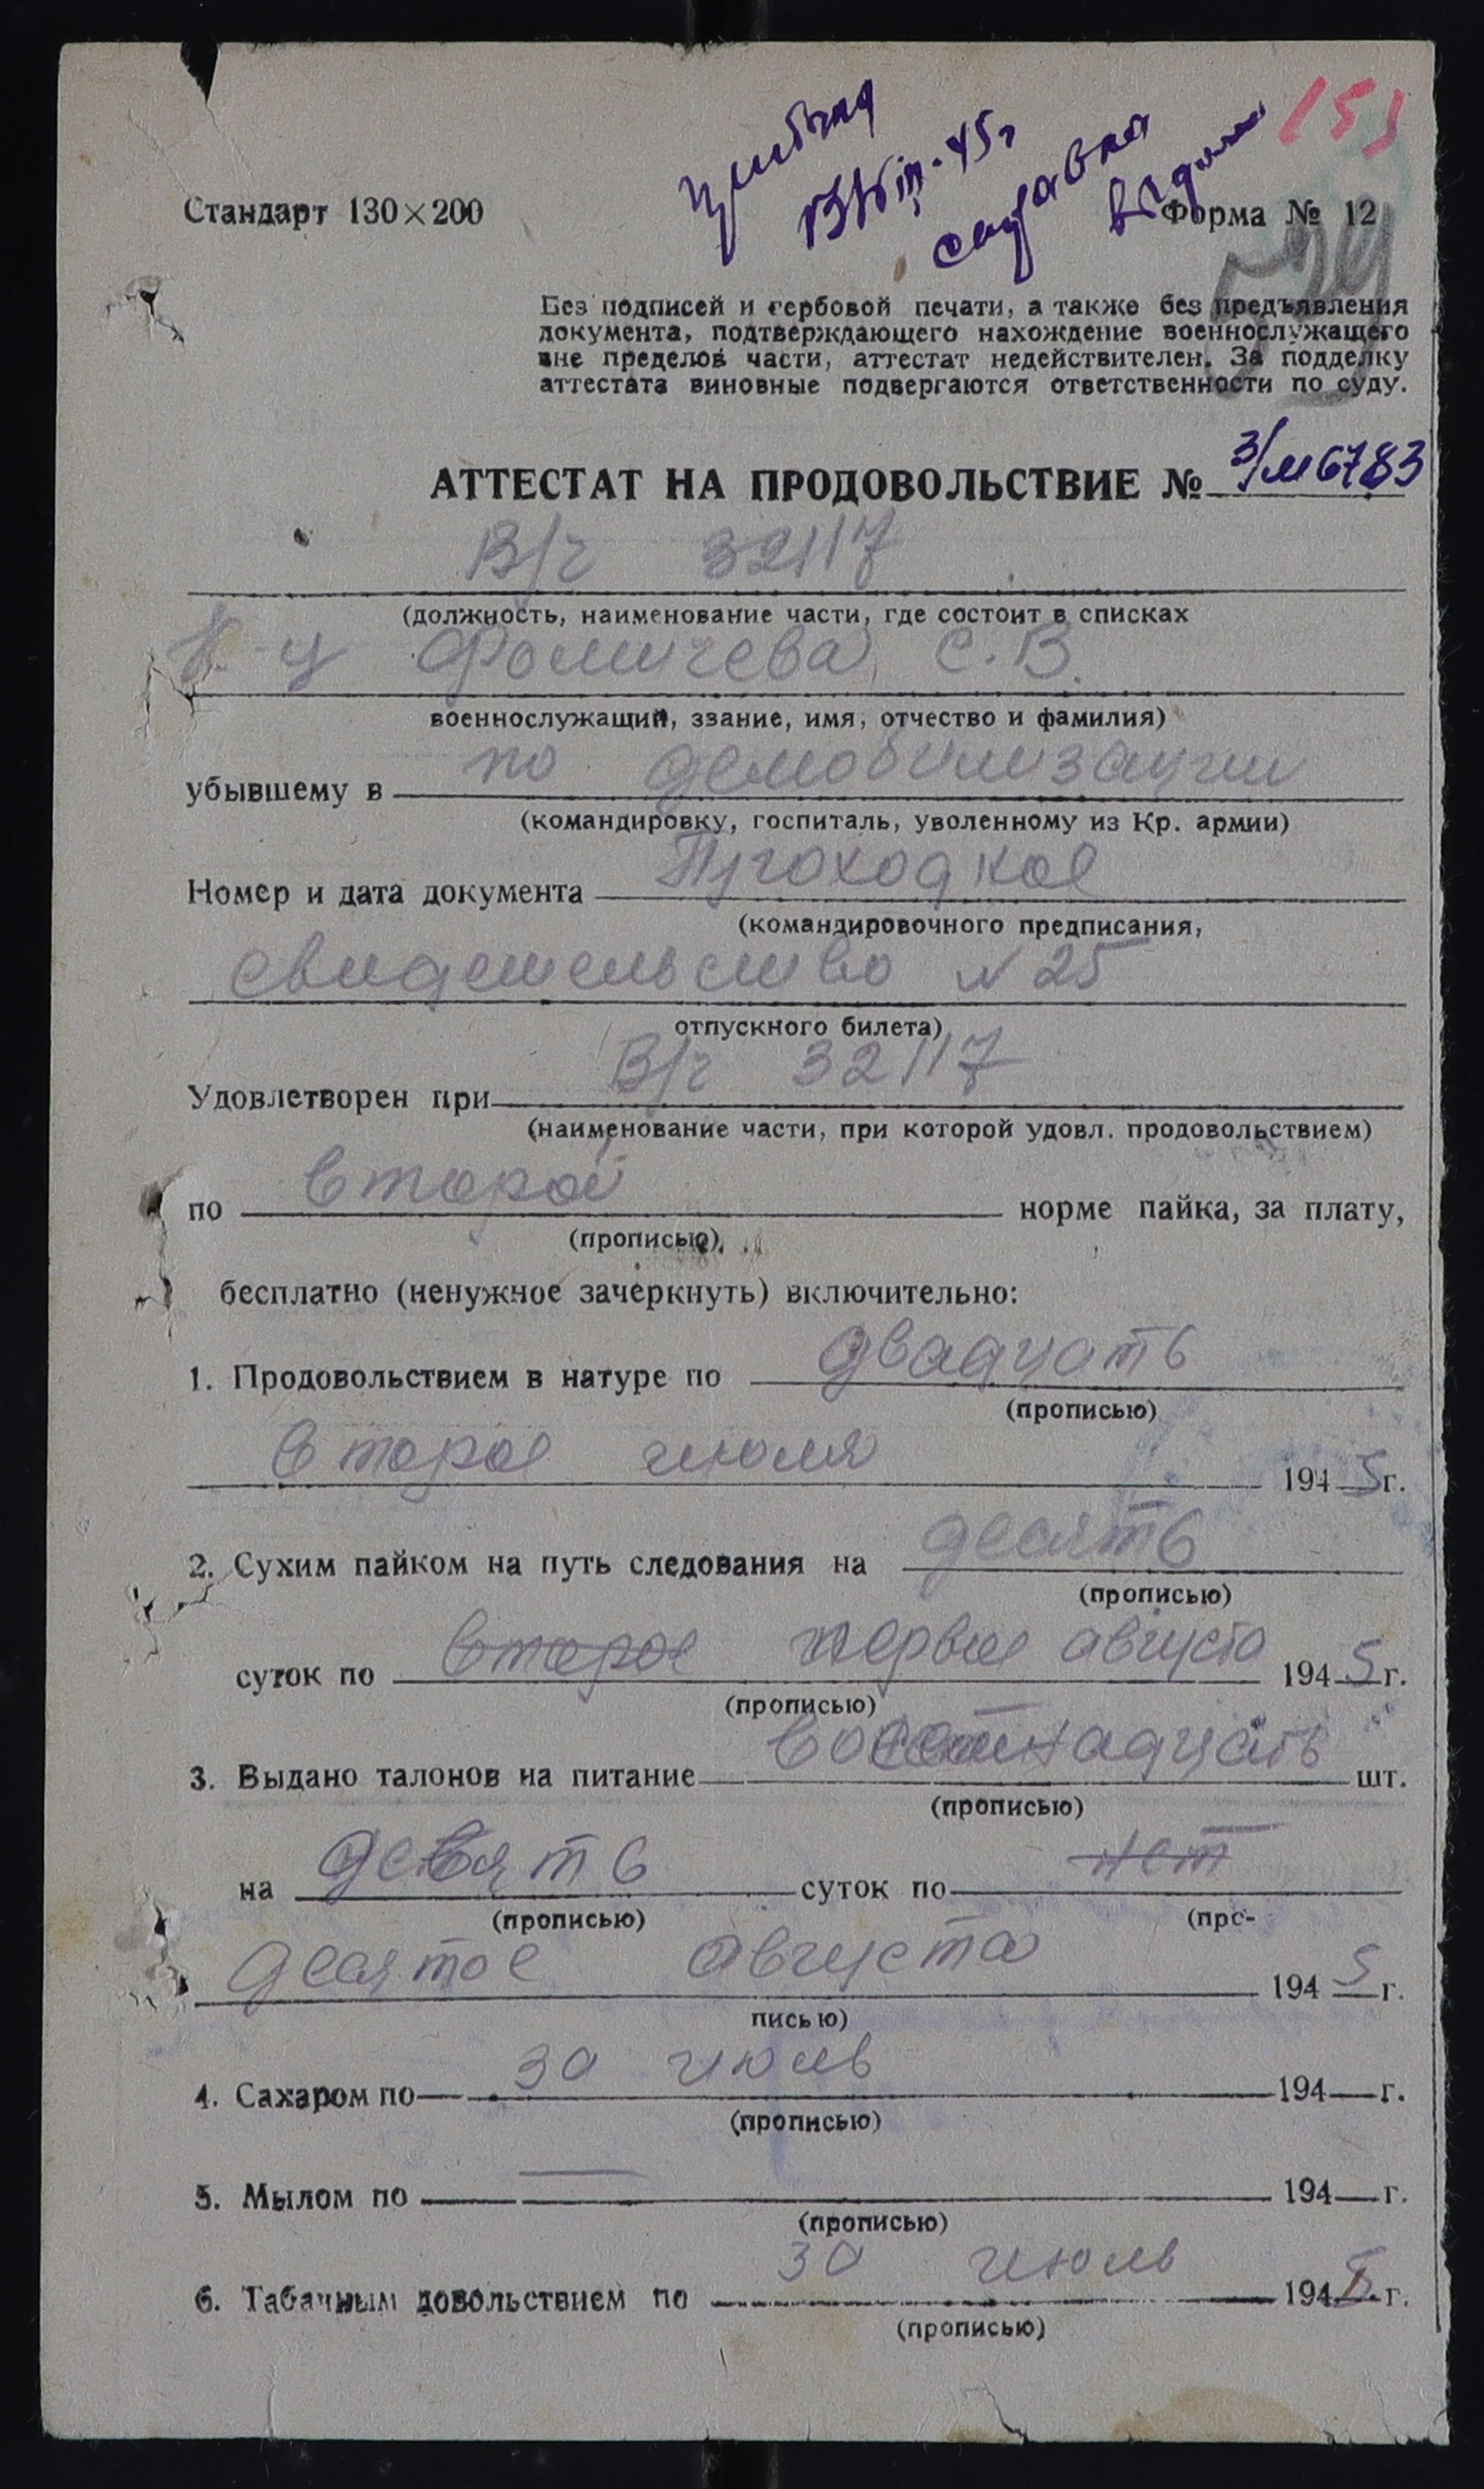 прибыл
13/VIII-45г
справка
выдана
151
Стандарт 130×200
Форма № 12
Без подписей и гербовой печати, а также без предъявления
документа, подтверждающего нахождение военнослужащего
вне пределов части, аттестат недействителен. За подделку
аттестата виновные подвергаются ответственности по суду.
АТТЕСТАТ НА ПРОДОВОЛЬСТВИЕ № 3/м6783
В/г 32117
(должность, наименование части, где состоит в списках
К-ц Фомичева С.В.
военнослужащий, звание, имя, отчество и фамилия)
убывшему в по демобилизации
(командировку, госпиталь, уволенному из Кр. армии)
Номер и дата документа Проходное
(командировочного предписания,
свидетельство N 25
отпускного билета)
Удовлетворен при В/г 32117
(наименование части, при которой удовл. продовольствием)
по второй норме пайка, за плату,
(прописью)
бесплатно (ненужное зачеркнуть) включительно:
1. Продовольствием в натуре по двадцать
(прописью)
второе июля 1945г.
2. Сухим пайком на путь следования на десять
(прописью)
суток по второе первое августа 1945г.
(прописью)
3. Выдано талонов на питание восемнадцать шт.
(прописью)
на девять суток по нет
(прописью) (про-
десятое августа 1945г.
писью)
4. Сахаром по 30 июль 194 г.
(прописью)
5. Мылом по — 194 г.
(прописью)
6. Табачным довольствием по 30 июль 1945 г.
(прописью)